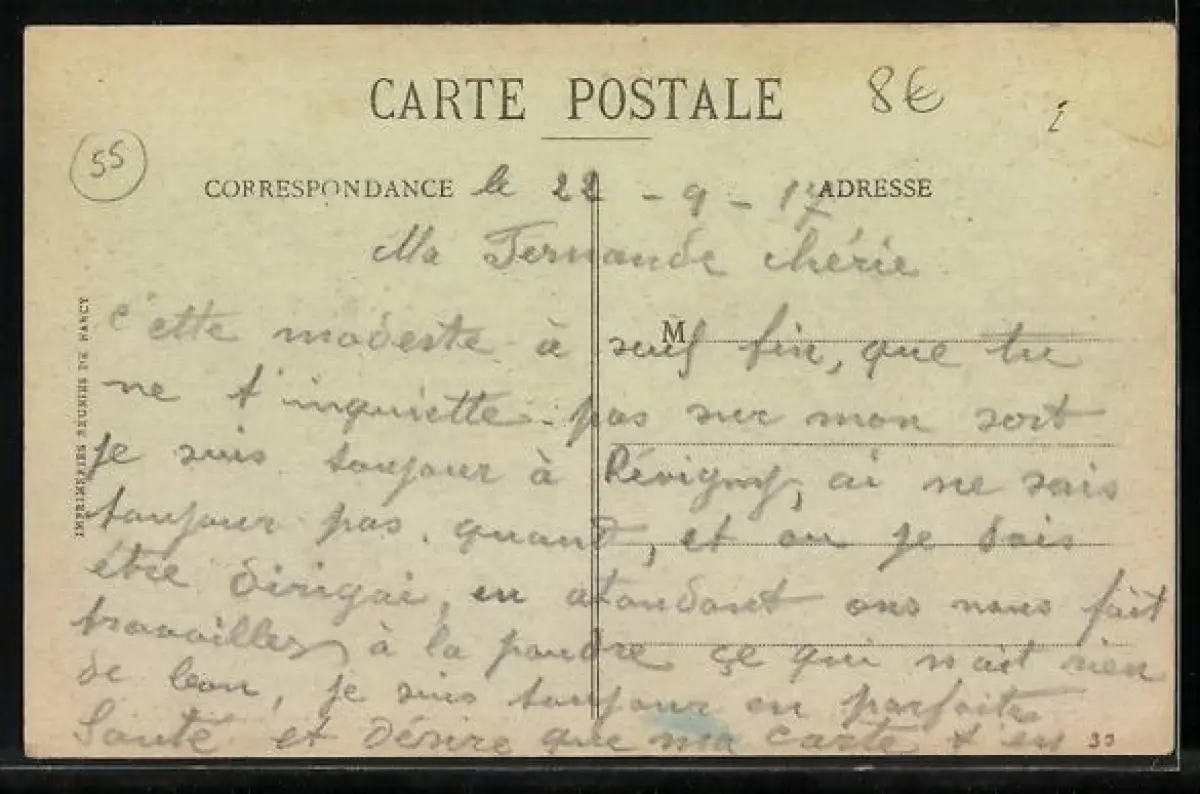 CARTE POSTALE
8€
55
CORRESPONDANCE le 22 - 9 - 17 ADRESSE
Ma Fernande chérie
c'ette modeste à seul fin, que tu
M
ne t'inquiette pas sur mon sort
je suis toujour à Révigny, ai ne sais
toujour pas quant, et ou je dois
être dirigai, en atandant ons nous fait
travailler à la poudre çe qui n'ait rien
de bon, je suis toujour en parfaite
Santé et désire que ma carte t'en
IMPRIMERIES REUNIES DE NANCY